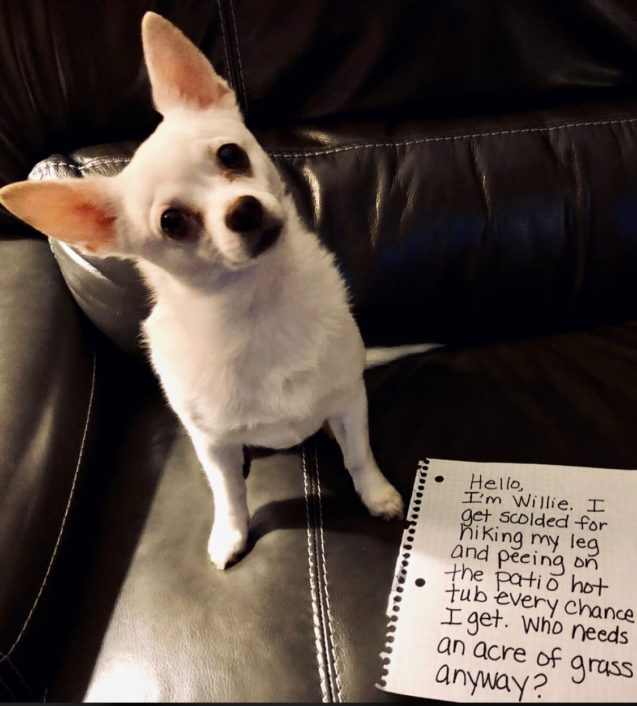 Hello,
I'm Willie. I
get scolded for
hiking my leg
and peeing on
the patio hot
tub every chance
I get. Who needs
an acre of grass
anyway?